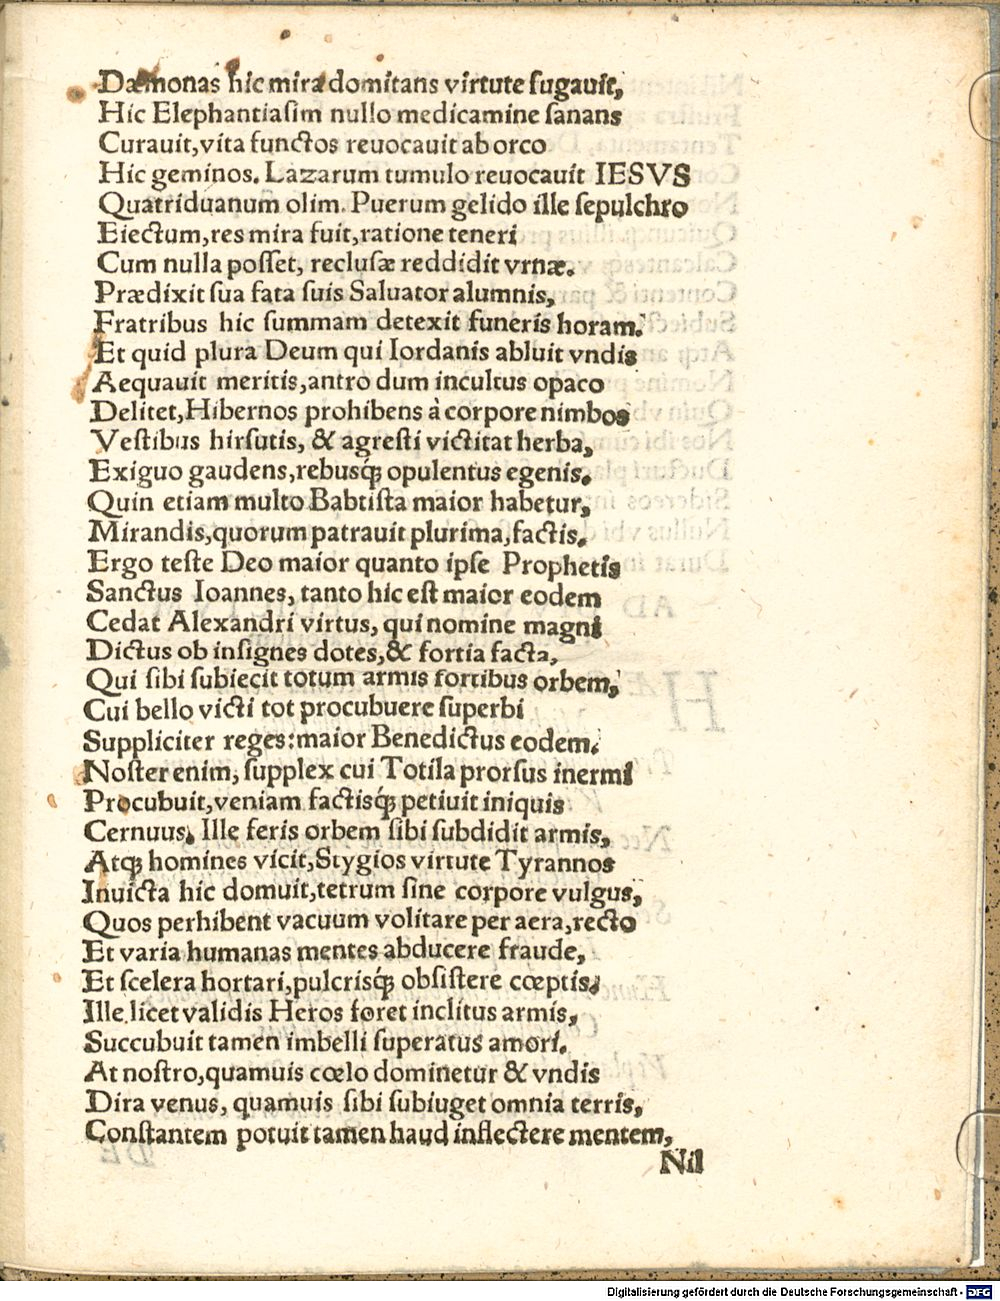 Dæmonas hic mira domitans virtute fugauit,
Hic Elephantiaſim nullo medicamine ſanans
Curauit, vita functos reuocauit ab orco
Hic geminos. Lazarum tumulo reuocauit IESVS
Quatriduanum olim. Puerum gelido ille ſepulchro
Eiectum, res mira fuit, ratione teneri
Cum nulla poſſet, recluſæ reddidit vrnæ.
Prædixit ſua fata ſuis Saluator alumnis,
Fratribus hic ſummam detexit funeris horam.
Et quid plura Deum qui Iordanis abluit vndis
Aequauit meritis, antro dum incultus opaco
Delitet, Hibernos prohibens à corpore nimbos
Veſtibus hirſutis, & agreſti victitat herba,
Exiguo gaudens, rebusqꝫ opulentus egenis.
Quin etiam multo Babtiſta maior habetur,
Mirandis, quorum patrauit plurima, factis.
Ergo teſte Deo maior quanto ipſe Prophetis
Sanctus Ioannes, tanto hic eſt maior eodem
Cedat Alexandri virtus, qui nomine magni
Dictus ob inſignes dotes, & fortia facta,
Qui ſibi ſubiecit totum armis fortibus orbem,
Cui bello victi tot procubuere ſuperbi
Suppliciter reges: maior Benedictus eodem.
Noſter enim, ſupplex cui Totila prorſus inermi
Procubuit, veniam factisqꝫ́ petiuit iniquis
Cernuus. Ille feris orbem ſibi ſubdidit armis,
Atqꝫ homines vicit, Stygios virtute Tyrannos
Inuicta hic domuit, tetrum ſine corpore vulgus,
Quos perhibent vacuum volitare per aera, recto
Et varia humanas mentes abducere fraude,
Et ſcelera hortari, pulcrisqꝫ́ obſiſtere cœptis.
Ille licet validis Heros foret inclitus armis,
Succubuit tamen imbelli ſuperatus amori.
At noſtro, quamuis cœlo dominetur & vndis
Dira venus, quamuis ſibi ſubiuget omnia terris,
Conſtantem potuit tamen haud inflectere mentem,
Nil
Digitalisierung gefördert durch die Deutsche Forschungsgemeinschaft - DFG